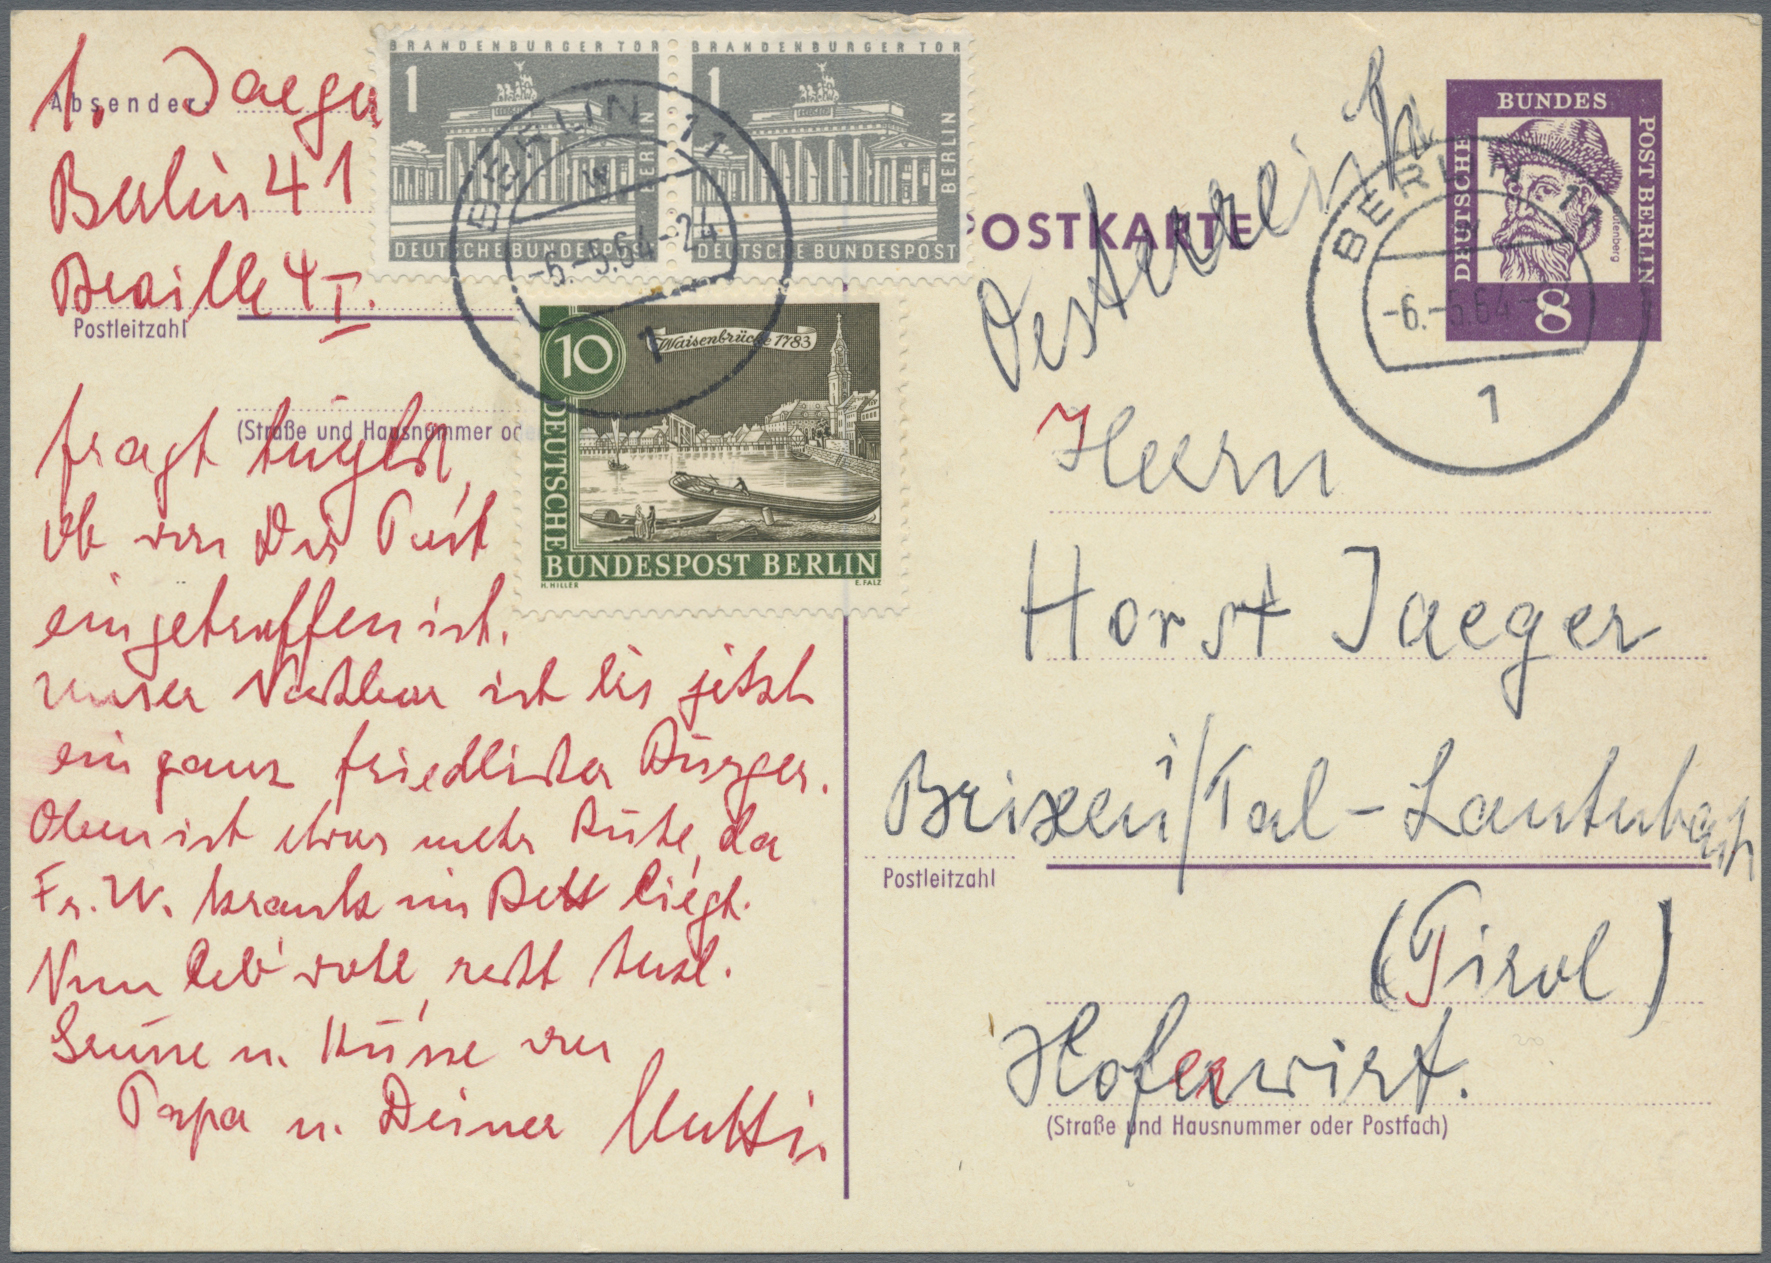 Absender:
1. Jaeger
Berlin 41
Braille 4 I.
Postleitzahl
(Straße und Hausnummer ode
fragt
ob von Dir Post
eingetroffen ist.
unser Nachbar ist bis jetzt
ein ganz friedlicher Bürger.
Oben ist etwas mehr Ruhe, da
Fr. W. krank im Bett liegt.
Nun leb' wohl, recht herzl.
Grüsse u. Küsse von
Papa u. Deiner Mutti
BRANDENBURGER TOR
1
BERLIN
DEUTSCHE BUNDESPOST
BRANDENBURGER TOR
1
BERLIN
DEUTSCHE BUNDESPOST
BERLIN 11
-6.-5.64-24
1
10
Waisenbrücke 1783
DEUTSCHE
BUNDESPOST BERLIN
H. HILLER
E. FALZ
POSTKARTE
Oesterreich
BUNDES
POST BERLIN
DEUTSCHE
Gutenberg
8
BERLIN 11
-6.-5.64-
1
Herrn
Horst Jaeger
Brixen i/Tal - Lauterbach
Postleitzahl
(Tirol)
Hoferwirt.
(Straße und Hausnummer oder Postfach)